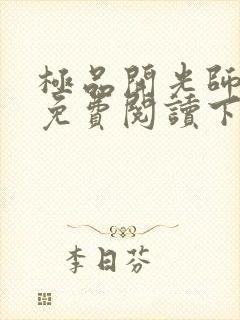 極品開光師
免費閱讀下
李日芬